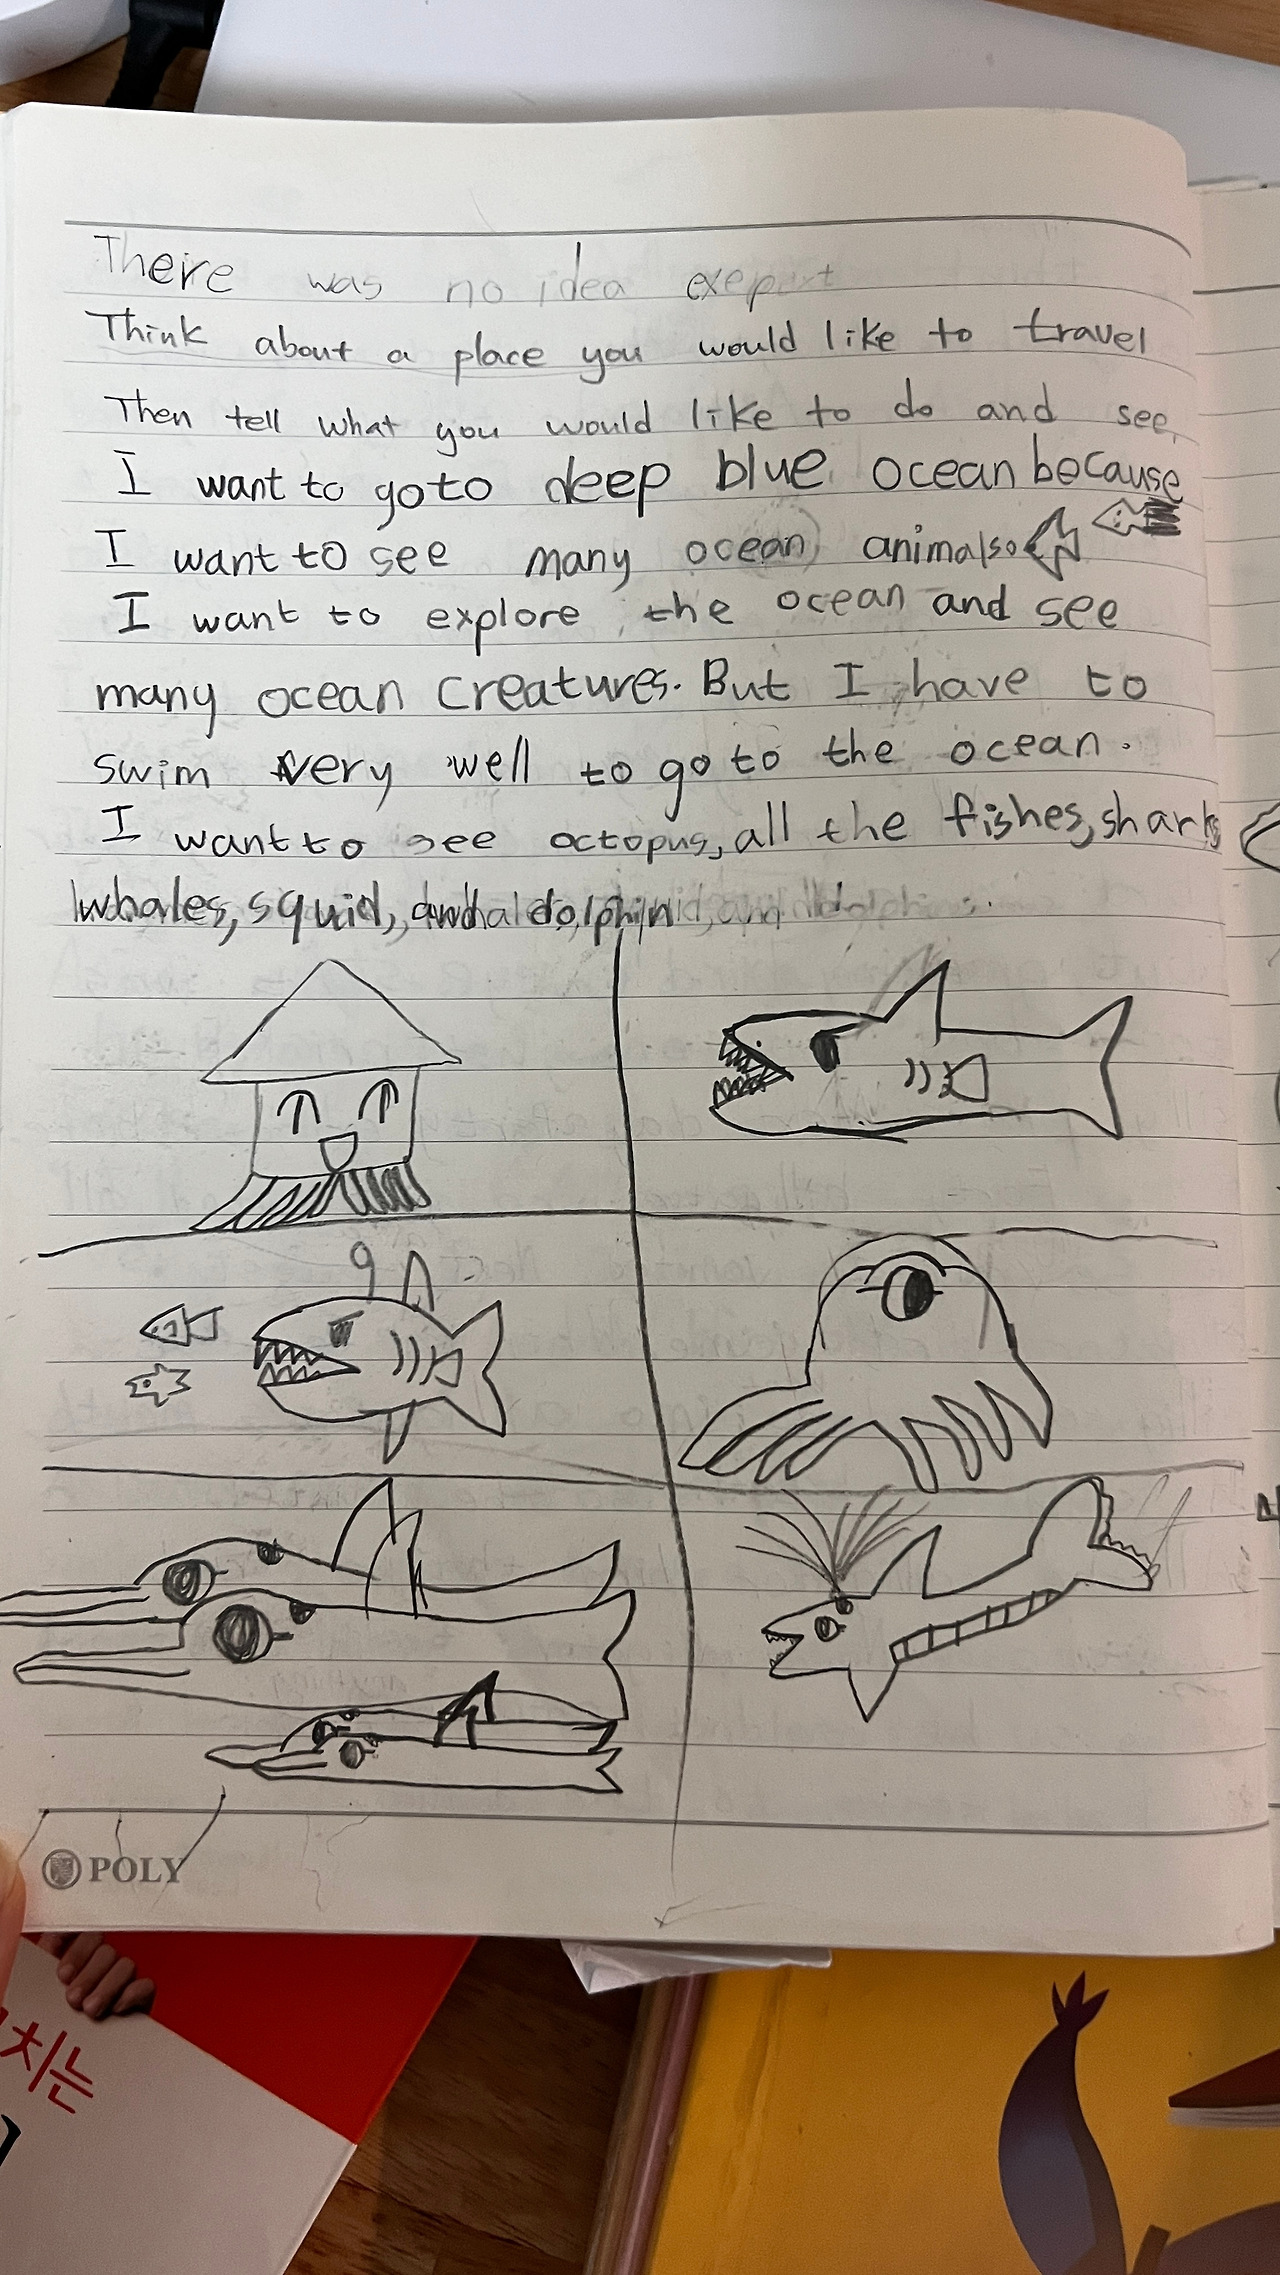 There was no idea exepart
Think about a place you would like to travel
Then tell what you would like to do and see,
I want to go to deep blue ocean because
I want to see many ocean animals.
I want to explore the ocean and see
many ocean creatures. But I have to
swim very well to go to the ocean.
I want to see octopus, all the fishes, sharks
whales, squid, and dolphin
POLY
치는